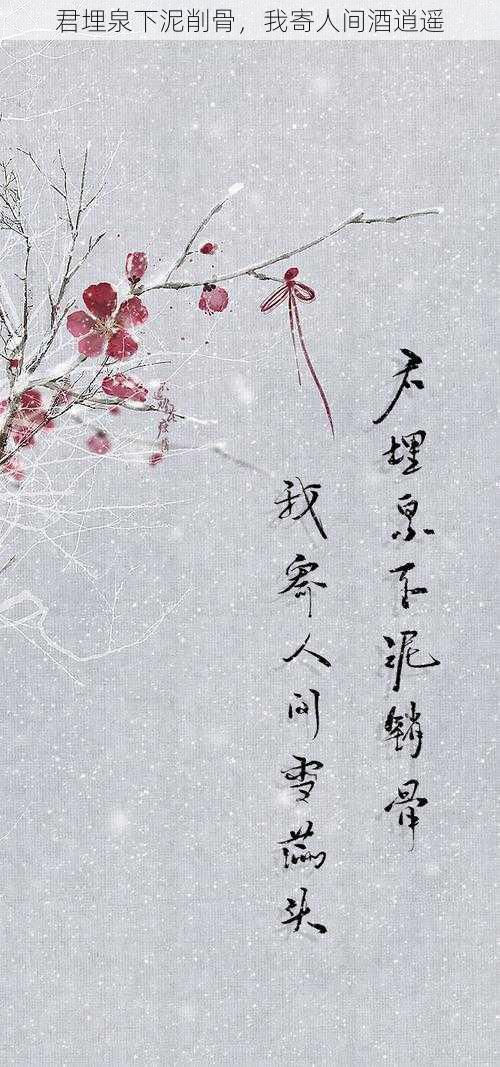 君埋泉下泥削骨，我寄人间酒逍遥
君埋泉下泥销骨
我寄人间雪满头